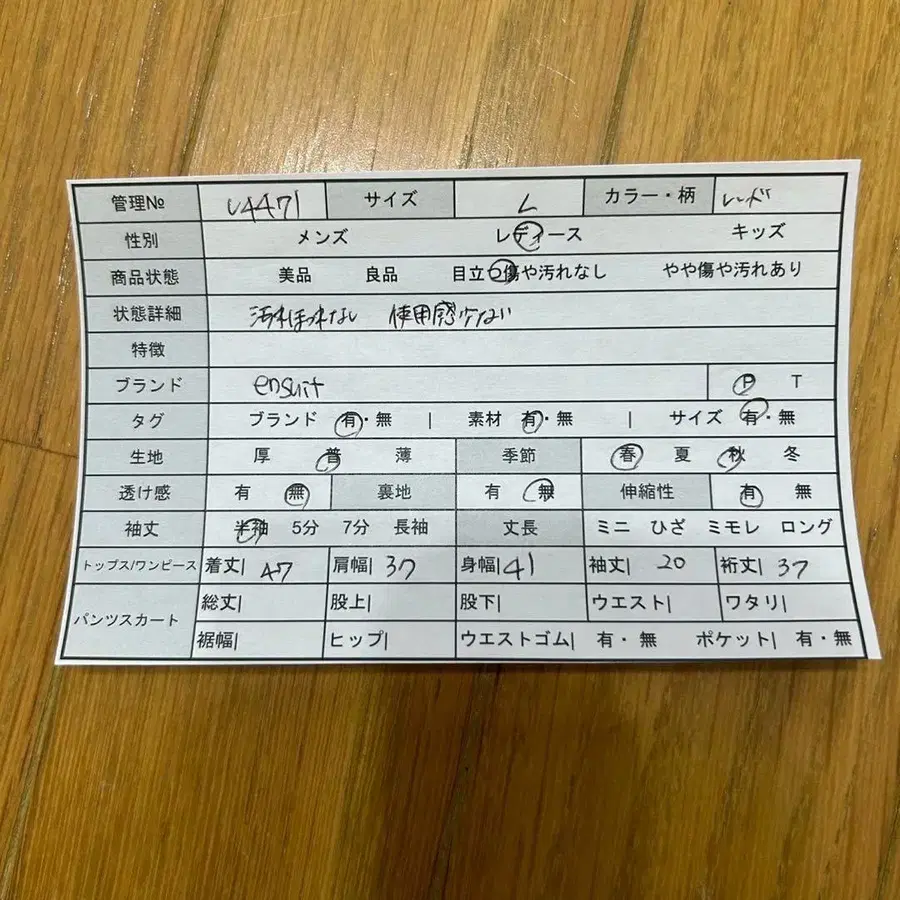 管理№ U4471 サイズ L カラー・柄 レッド
性別 メンズ レディース キッズ
商品状態 美品 良品 目立つ傷や汚れなし やや傷や汚れあり
状態詳細 汚れほつれなし 使用感少ない
特徴
ブランド ensuit P T
タグ ブランド 有・無 | 素材 有・無 | サイズ 有・無
生地 厚 普 薄 季節 春 夏 秋 冬
透け感 有 無 裏地 有 無 伸縮性 有 無
袖丈 半袖 5分 7分 長袖 丈長 ミニ ひざ ミモレ ロング
トップス/ワンピース 着丈| 47 肩幅| 37 身幅| 41 袖丈| 20 裄丈| 37
パンツスカート 総丈| 股上| 股下| ウエスト| ワタリ|
裾幅| ヒップ| ウエストゴム| 有・無 ポケット| 有・無